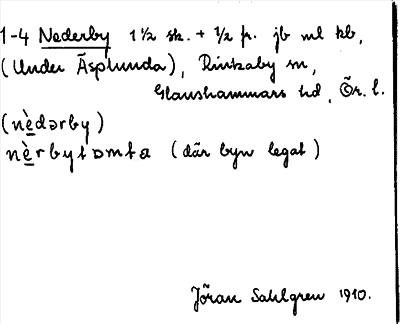 1-4 Nederby 1 1/2 sk. + 1/2 fr. jb ml kb,
(Under Äsplunda), Rinkaby sn,
Glanshammars hd, Ör. l.
(nèdərby)
nèrbytomta (där byn legat)
Jöran Sahlgren 1910.